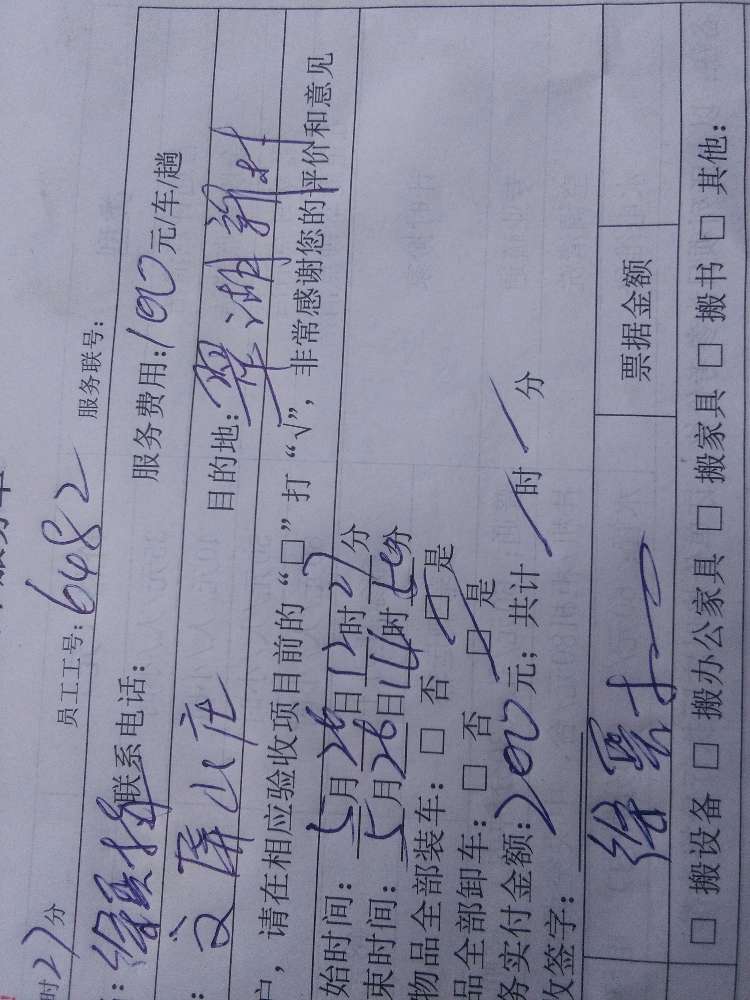 时27分 员工工号: 6482 服务联号:
联系电话: 服务费用: 100元/车/趟
文屏山庄 目的地: 翠湖新村
户, 请在相应验收项目前的“□”打“√”, 非常感谢您的评价和意见
始时间: 5月26日12时27分
束时间: 5月26日14时50分
物品全部装车: □ 否 □ 是
品全部卸车: □ 否 □ 是
务实付金额: 200元; 共计 时 分
收签字:
徐 票据金额
□ 搬设备 □ 搬办公家具 □ 搬家具 □ 搬书 □ 其他: